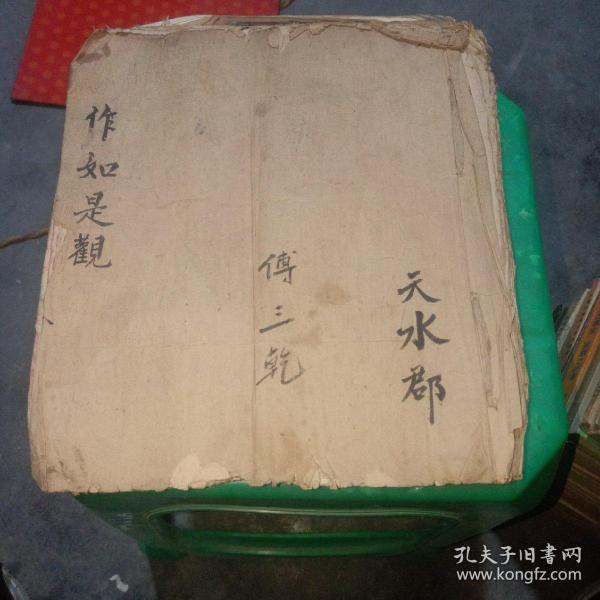 天水郡
傅三乾
作如是觀
孔夫子旧书网
www.kongfz.com